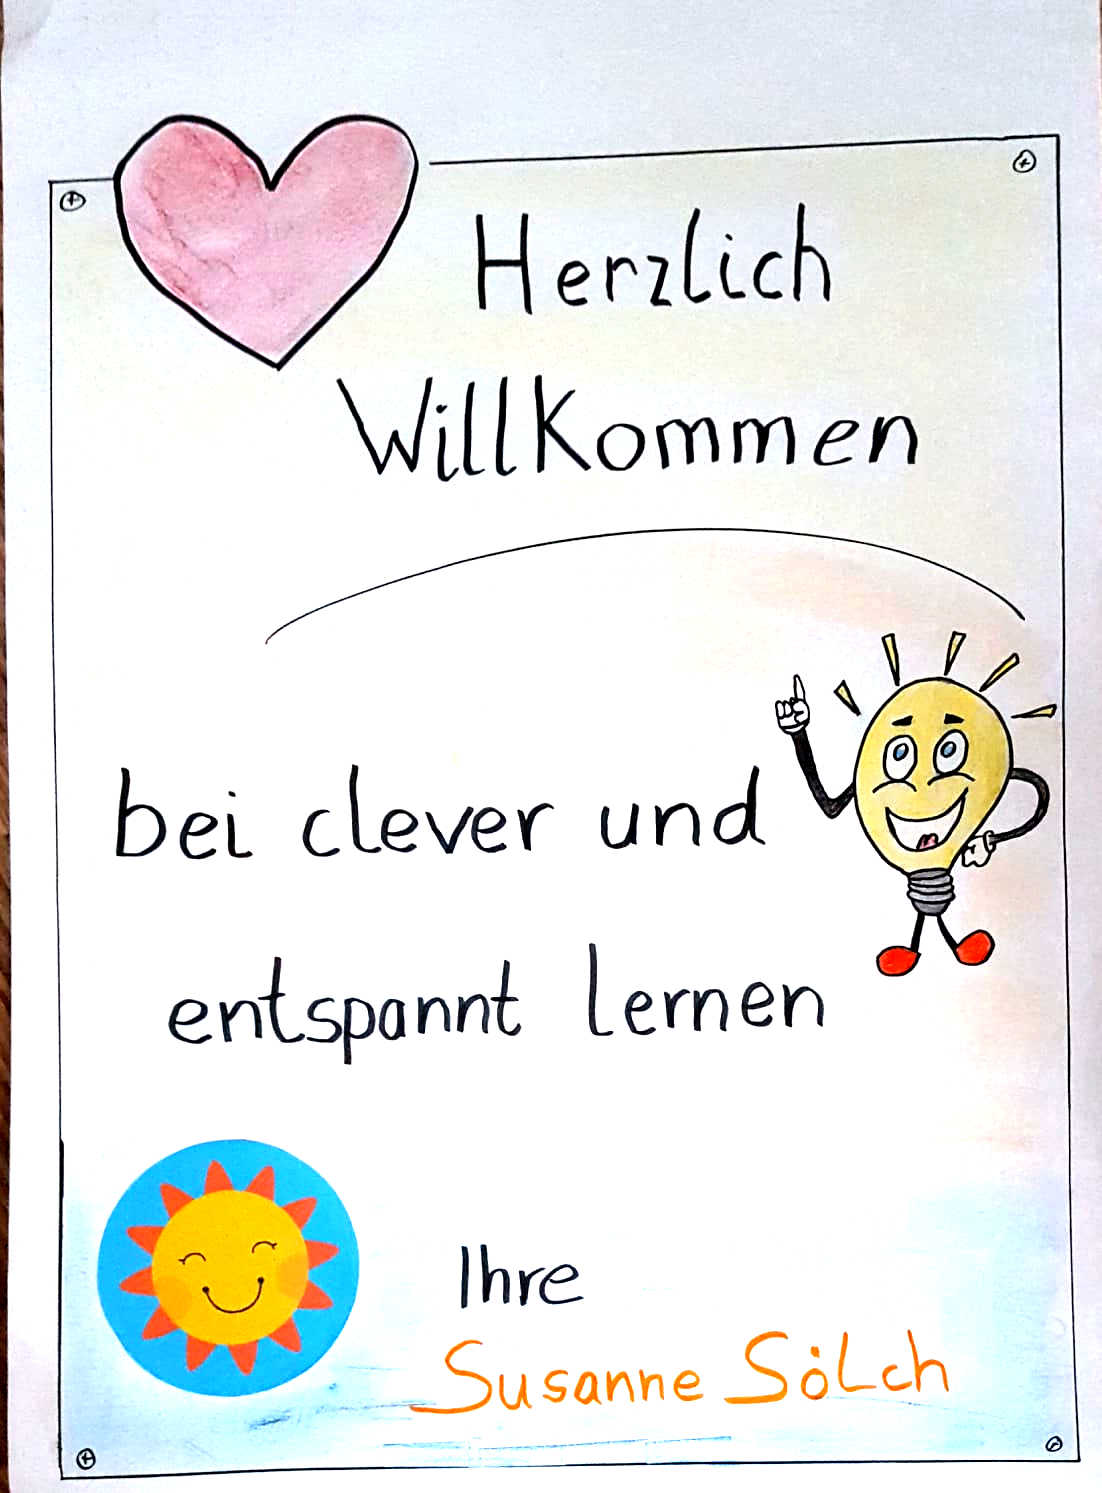 Herzlich
Willkommen
bei clever und
entspannt lernen
Ihre
Susanne Sölch